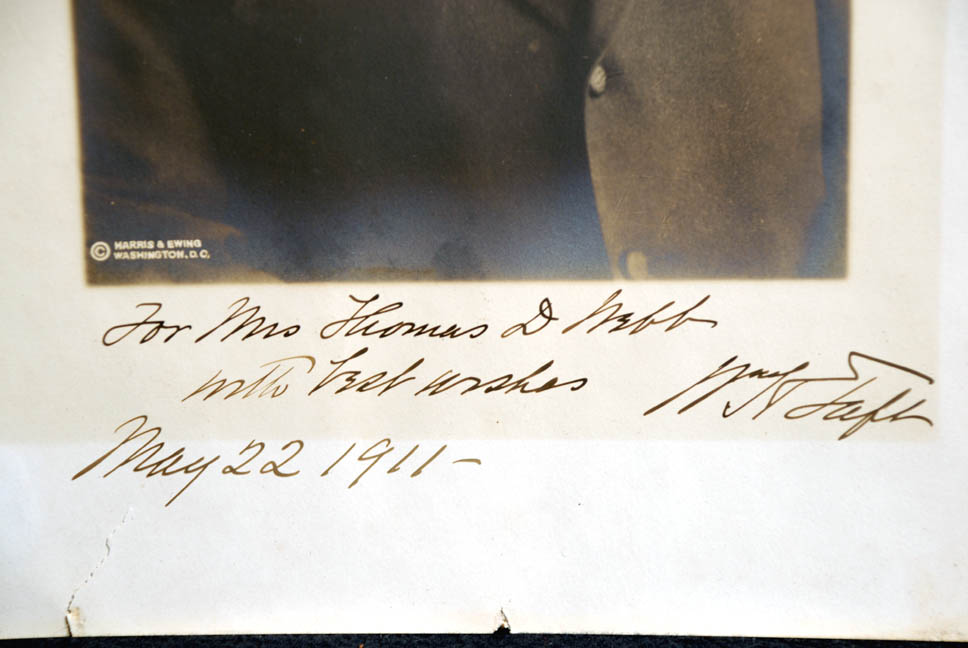 © HARRIS & EWING
WASHINGTON, D.C.
For Mrs Thomas D Webb
with best wishes
Wm H Taft
May 22 1911 –